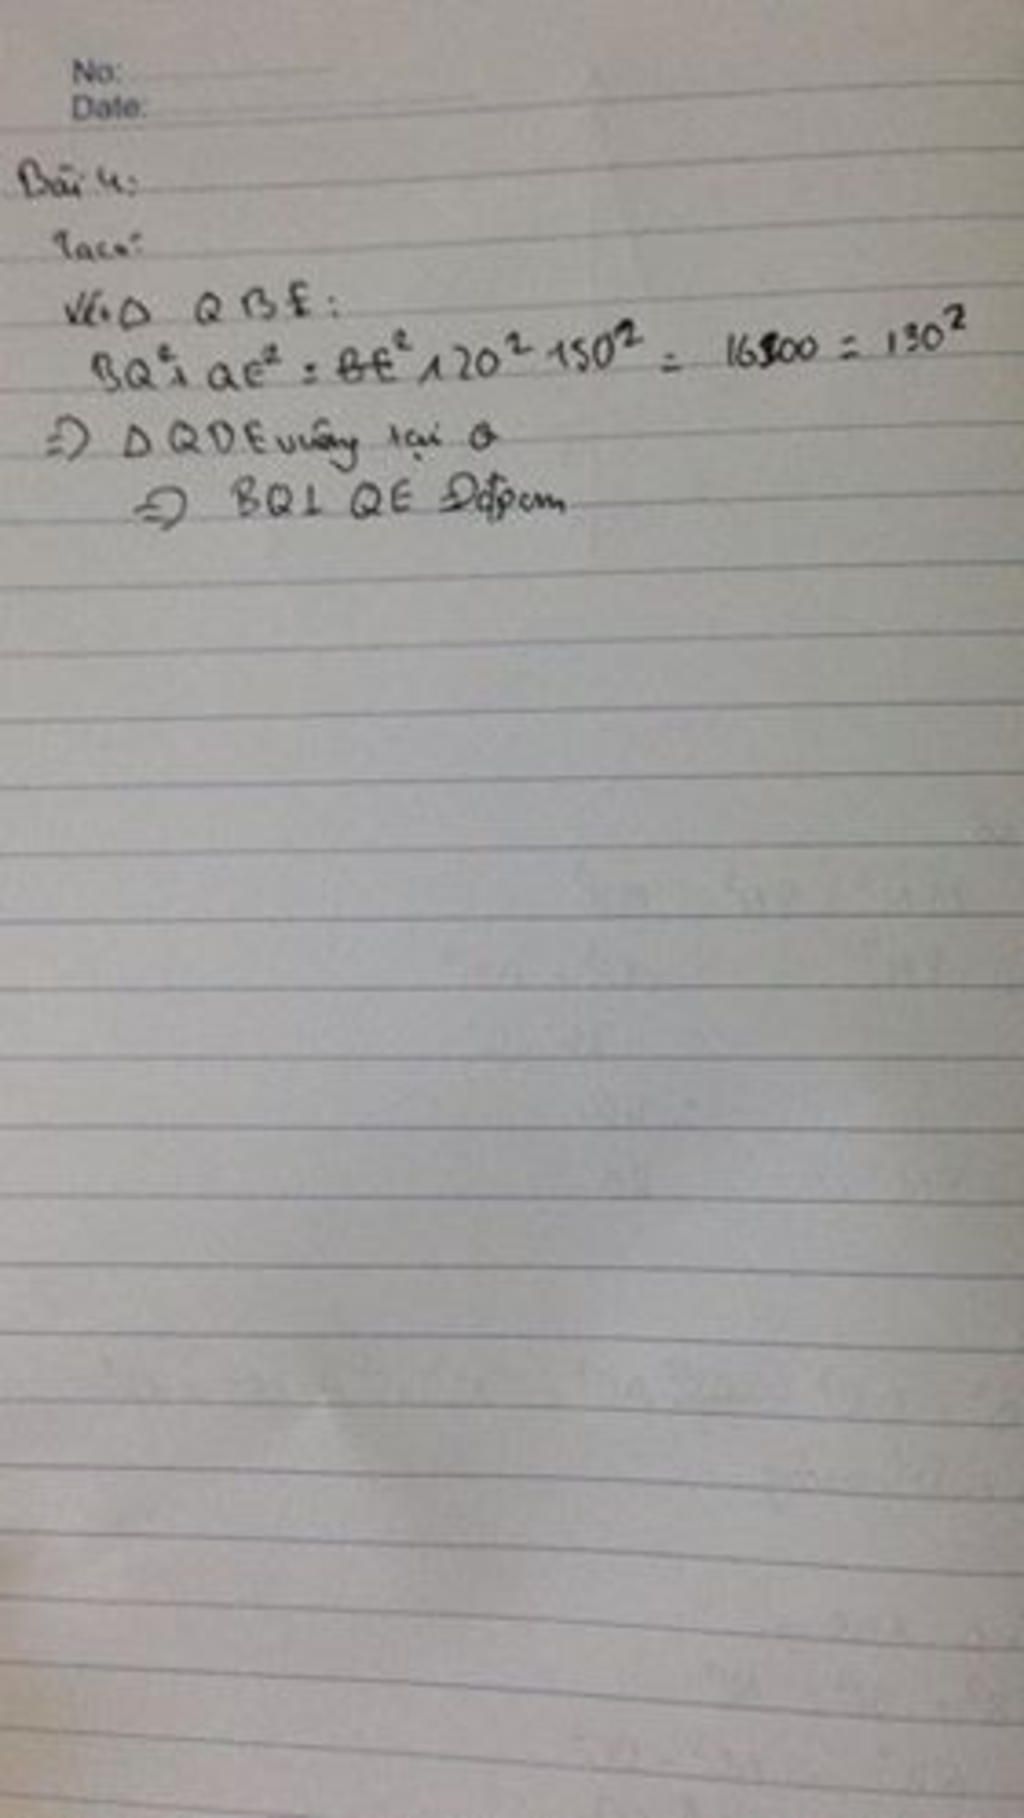 No:
Date:
Bài 4:
Ta có:
Với Δ QBE:
BQ²+ QE² = BE² 120² +50² = 16900 = 130²
=> Δ QDE vuông tại Q
=> BQ⊥ QE Đđpcm